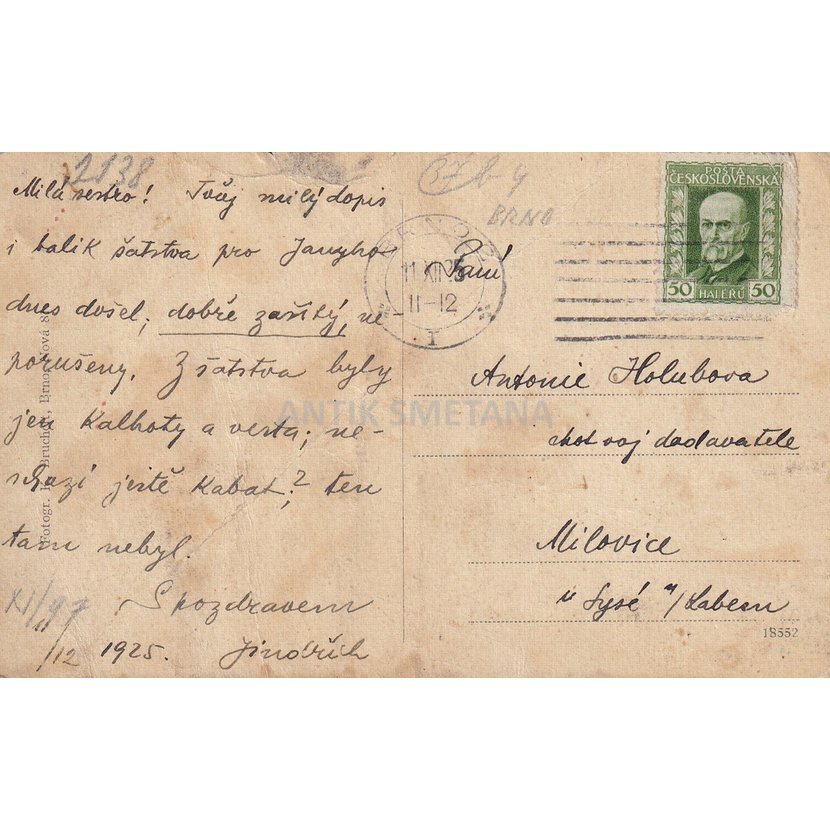 2838
Milá sestro! Tvůj milý dopis
i balik šatstva pro Janyho
dnes došel, dobře zašitý, ne-
porušeny. Z šatstva byly
jen Kalhoty a vesta; ne-
schazí ještě Kabat? ten
tam nebyl.
S pozdravem
11/12 1925. Jindřich
XI/97
Fotogr. Bruch, Brno
BRNO
BRNO 2
11 XII 25
11-12
I
POŠTA
ČESKOSLOVENSKÁ
50 HALÉŘŮ 50
Paní
Antonie Holubova
choť voj dodavatele
Milovice
u Lysé n/Labem
18552
ANTIK SMETANA